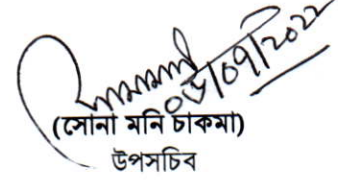 ০৬/০৭/২০২২
(সোনা মনি চাকমা)
উপসচিব